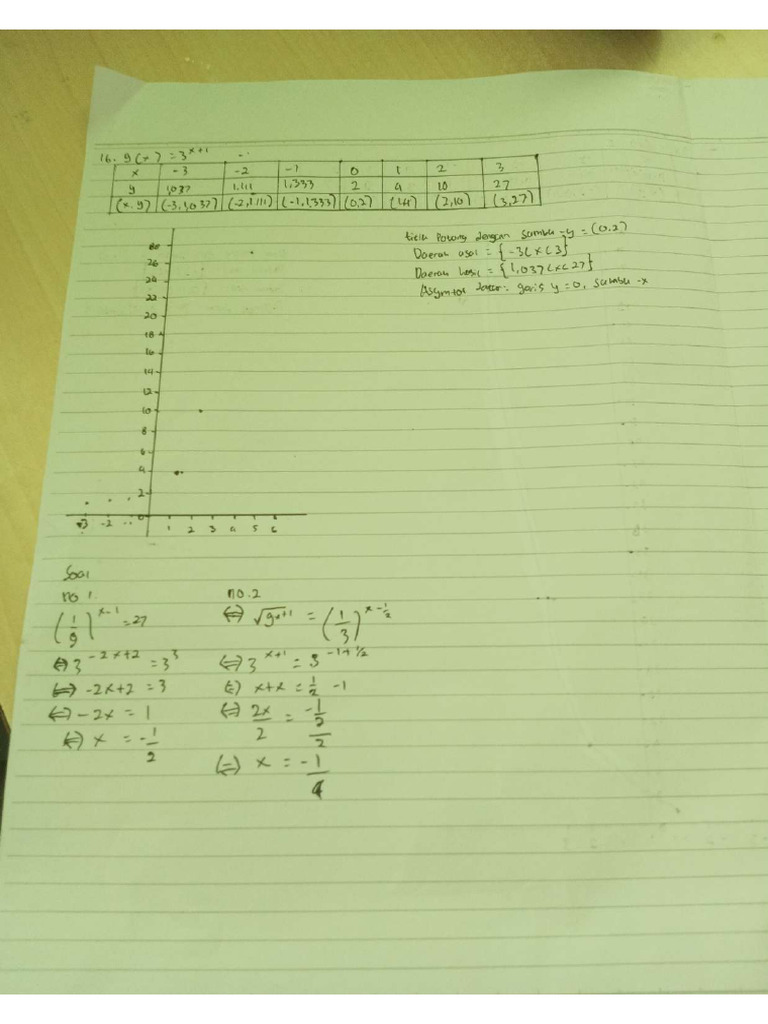 16. g(x) = 3^x+1
x -3 -2 -1 0 1 2 3
y 1,037 1,111 1,333 2 4 10 27
(x.y) (-3,1,037) (-2,1,111) (-1,1,333) (0,2) (1,4) (2,10) (3,27)
titik Potong dengan sumbu -y = (0.2)
Daerah asal = {-3<x<3}
Daerah hasil = {1,037<x<27}
Asymtot datar: garis y=0, sumbu -x
28
26
24
22
20
18
16
14
12
10
8
6
4
2
0
-3 -2 1 2 3 4 5 6
Soal
no 1. no.2
(1/9)^x-1 = 27 (=) √9^x+1 = (1/3)^x-1/2
(=) 3^-2x+2 = 3^3 (=) 3^x+1 = 3^-1+1/2
(=) -2x+2 = 3 (=) x+x = 1/2 -1
(=) -2x = 1 (=) 2x/2 = -1/2/2
(=) x = -1/2
(=) x = -1/4